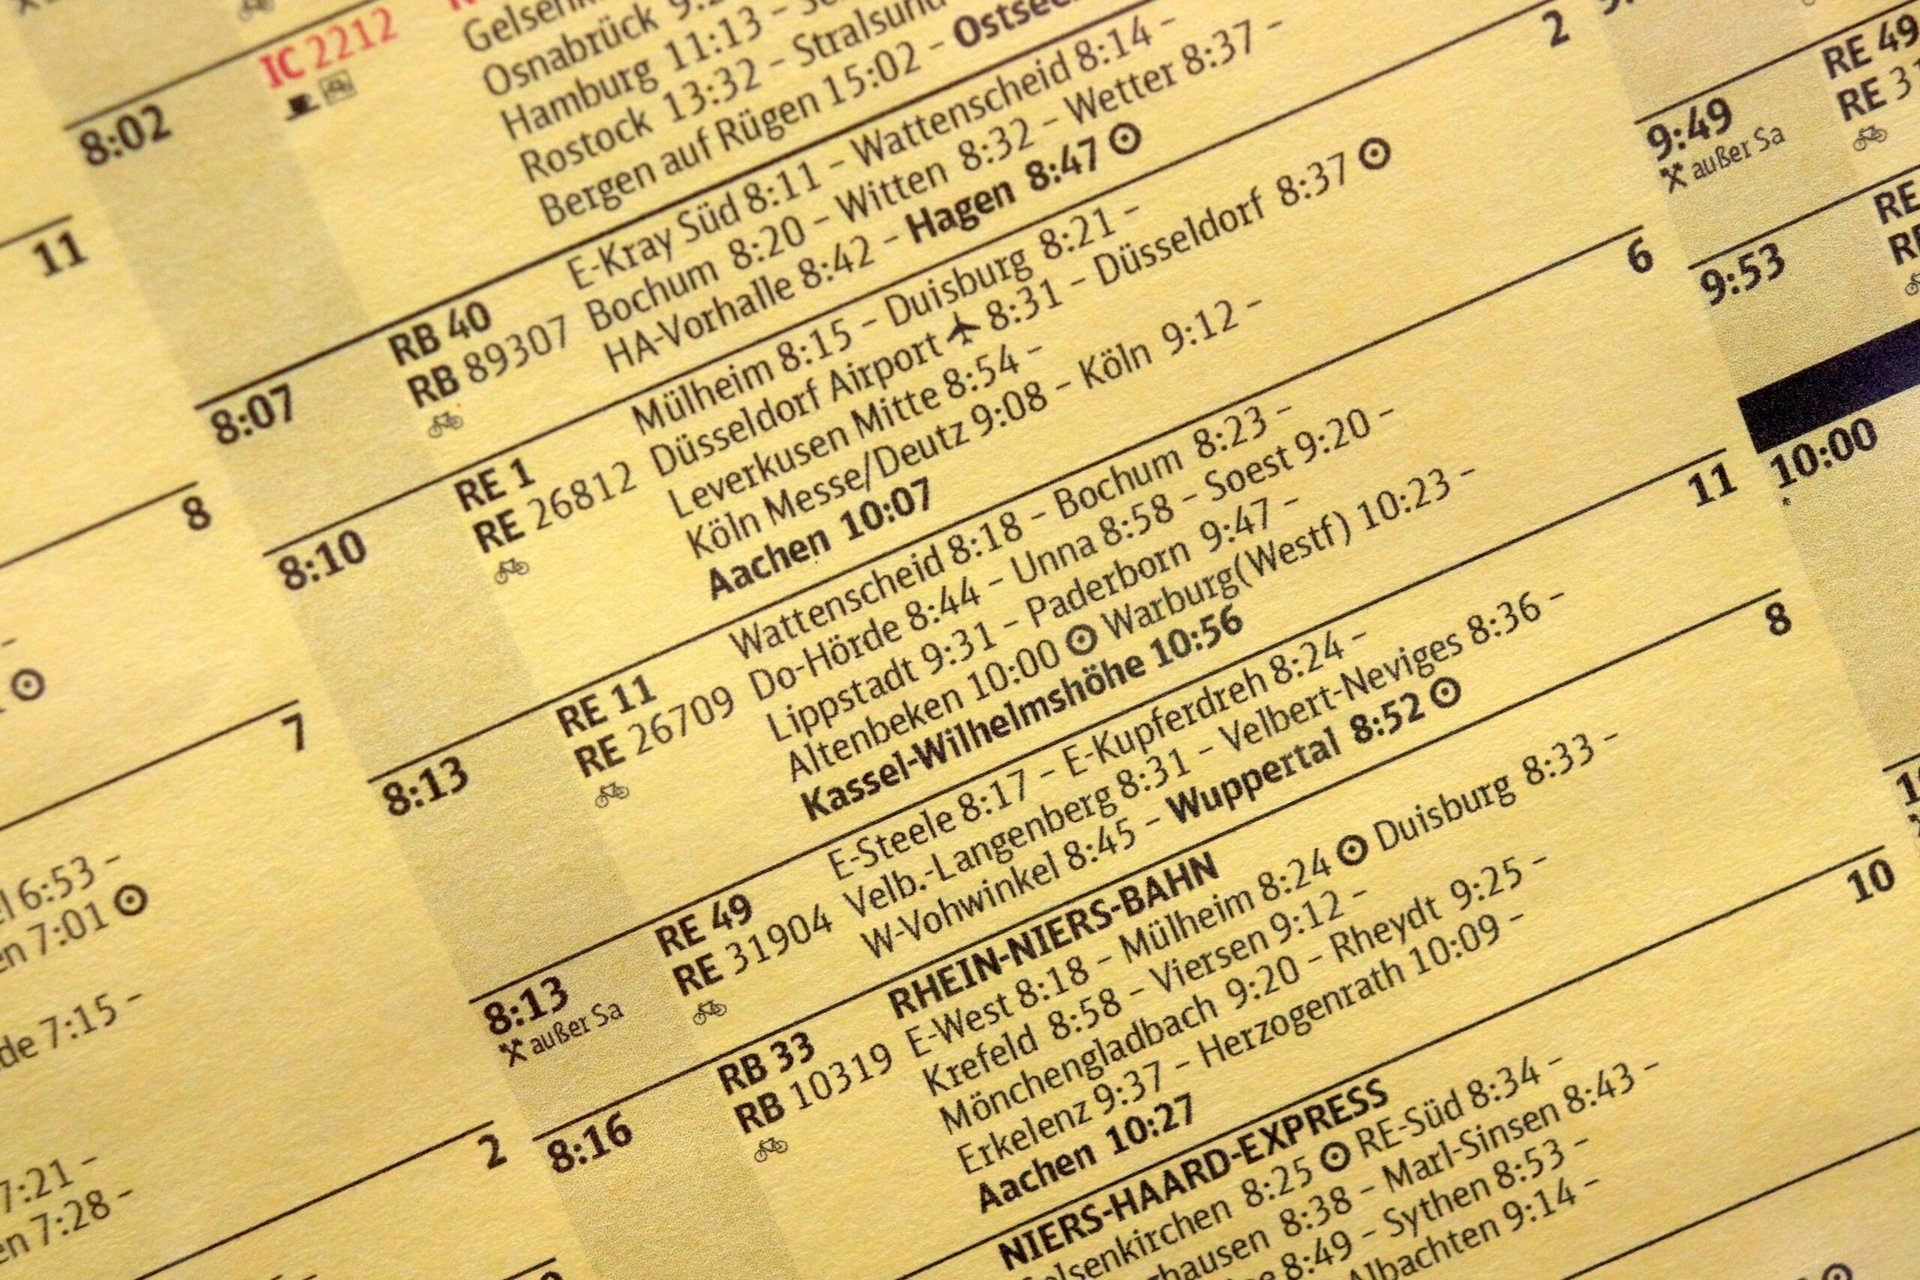 11
8
7
6:53 –
7:01
7:15 –
2
7:21 –
7:28 –
8:02
IC 2212
Osnabrück
Hamburg 11:13 –
Rostock 13:32 – Stralsund
Bergen auf Rügen 15:02 –
8:07
RB 40
RB 89307
E-Kray Süd 8:11 – Wattenscheid 8:14 –
Bochum 8:20 – Witten 8:32 – Wetter 8:37 –
HA-Vorhalle 8:42 – Hagen 8:47
2
8:10
RE 1
RE 26812
Mülheim 8:15 – Duisburg 8:21 –
Düsseldorf Airport 8:31 – Düsseldorf 8:37
Leverkusen Mitte 8:54 –
Köln Messe/Deutz 9:08 – Köln 9:12 –
Aachen 10:07
6
8:13
RE 11
RE 26709
Wattenscheid 8:18 – Bochum 8:23 –
Do-Hörde 8:44 – Unna 8:58 – Soest 9:20 –
Lippstadt 9:31 – Paderborn 9:47 –
Altenbeken 10:00 Warburg(Westf) 10:23 –
Kassel-Wilhelmshöhe 10:56
11
8:13
außer Sa
RE 49
RE 31904
E-Steele 8:17 – E-Kupferdreh 8:24 –
Velb.-Langenberg 8:31 – Velbert-Neviges 8:36 –
W-Vohwinkel 8:45 – Wuppertal 8:52
8
8:16
RB 33
RB 10319
RHEIN-NIERS-BAHN
E-West 8:18 – Mülheim 8:24 Duisburg 8:33 –
Krefeld 8:58 – Viersen 9:12 –
Mönchengladbach 9:20 – Rheydt 9:25 –
Erkelenz 9:37 – Herzogenrath 10:09 –
Aachen 10:27
10
NIERS-HAARD-EXPRESS
8:25 RE-Süd 8:34 –
8:38 – Marl-Sinsen 8:43 –
8:49 – Sythen 8:53 –
Albachten 9:14 –
9:49
außer Sa
RE 49
RE
9:53
RE
10:00